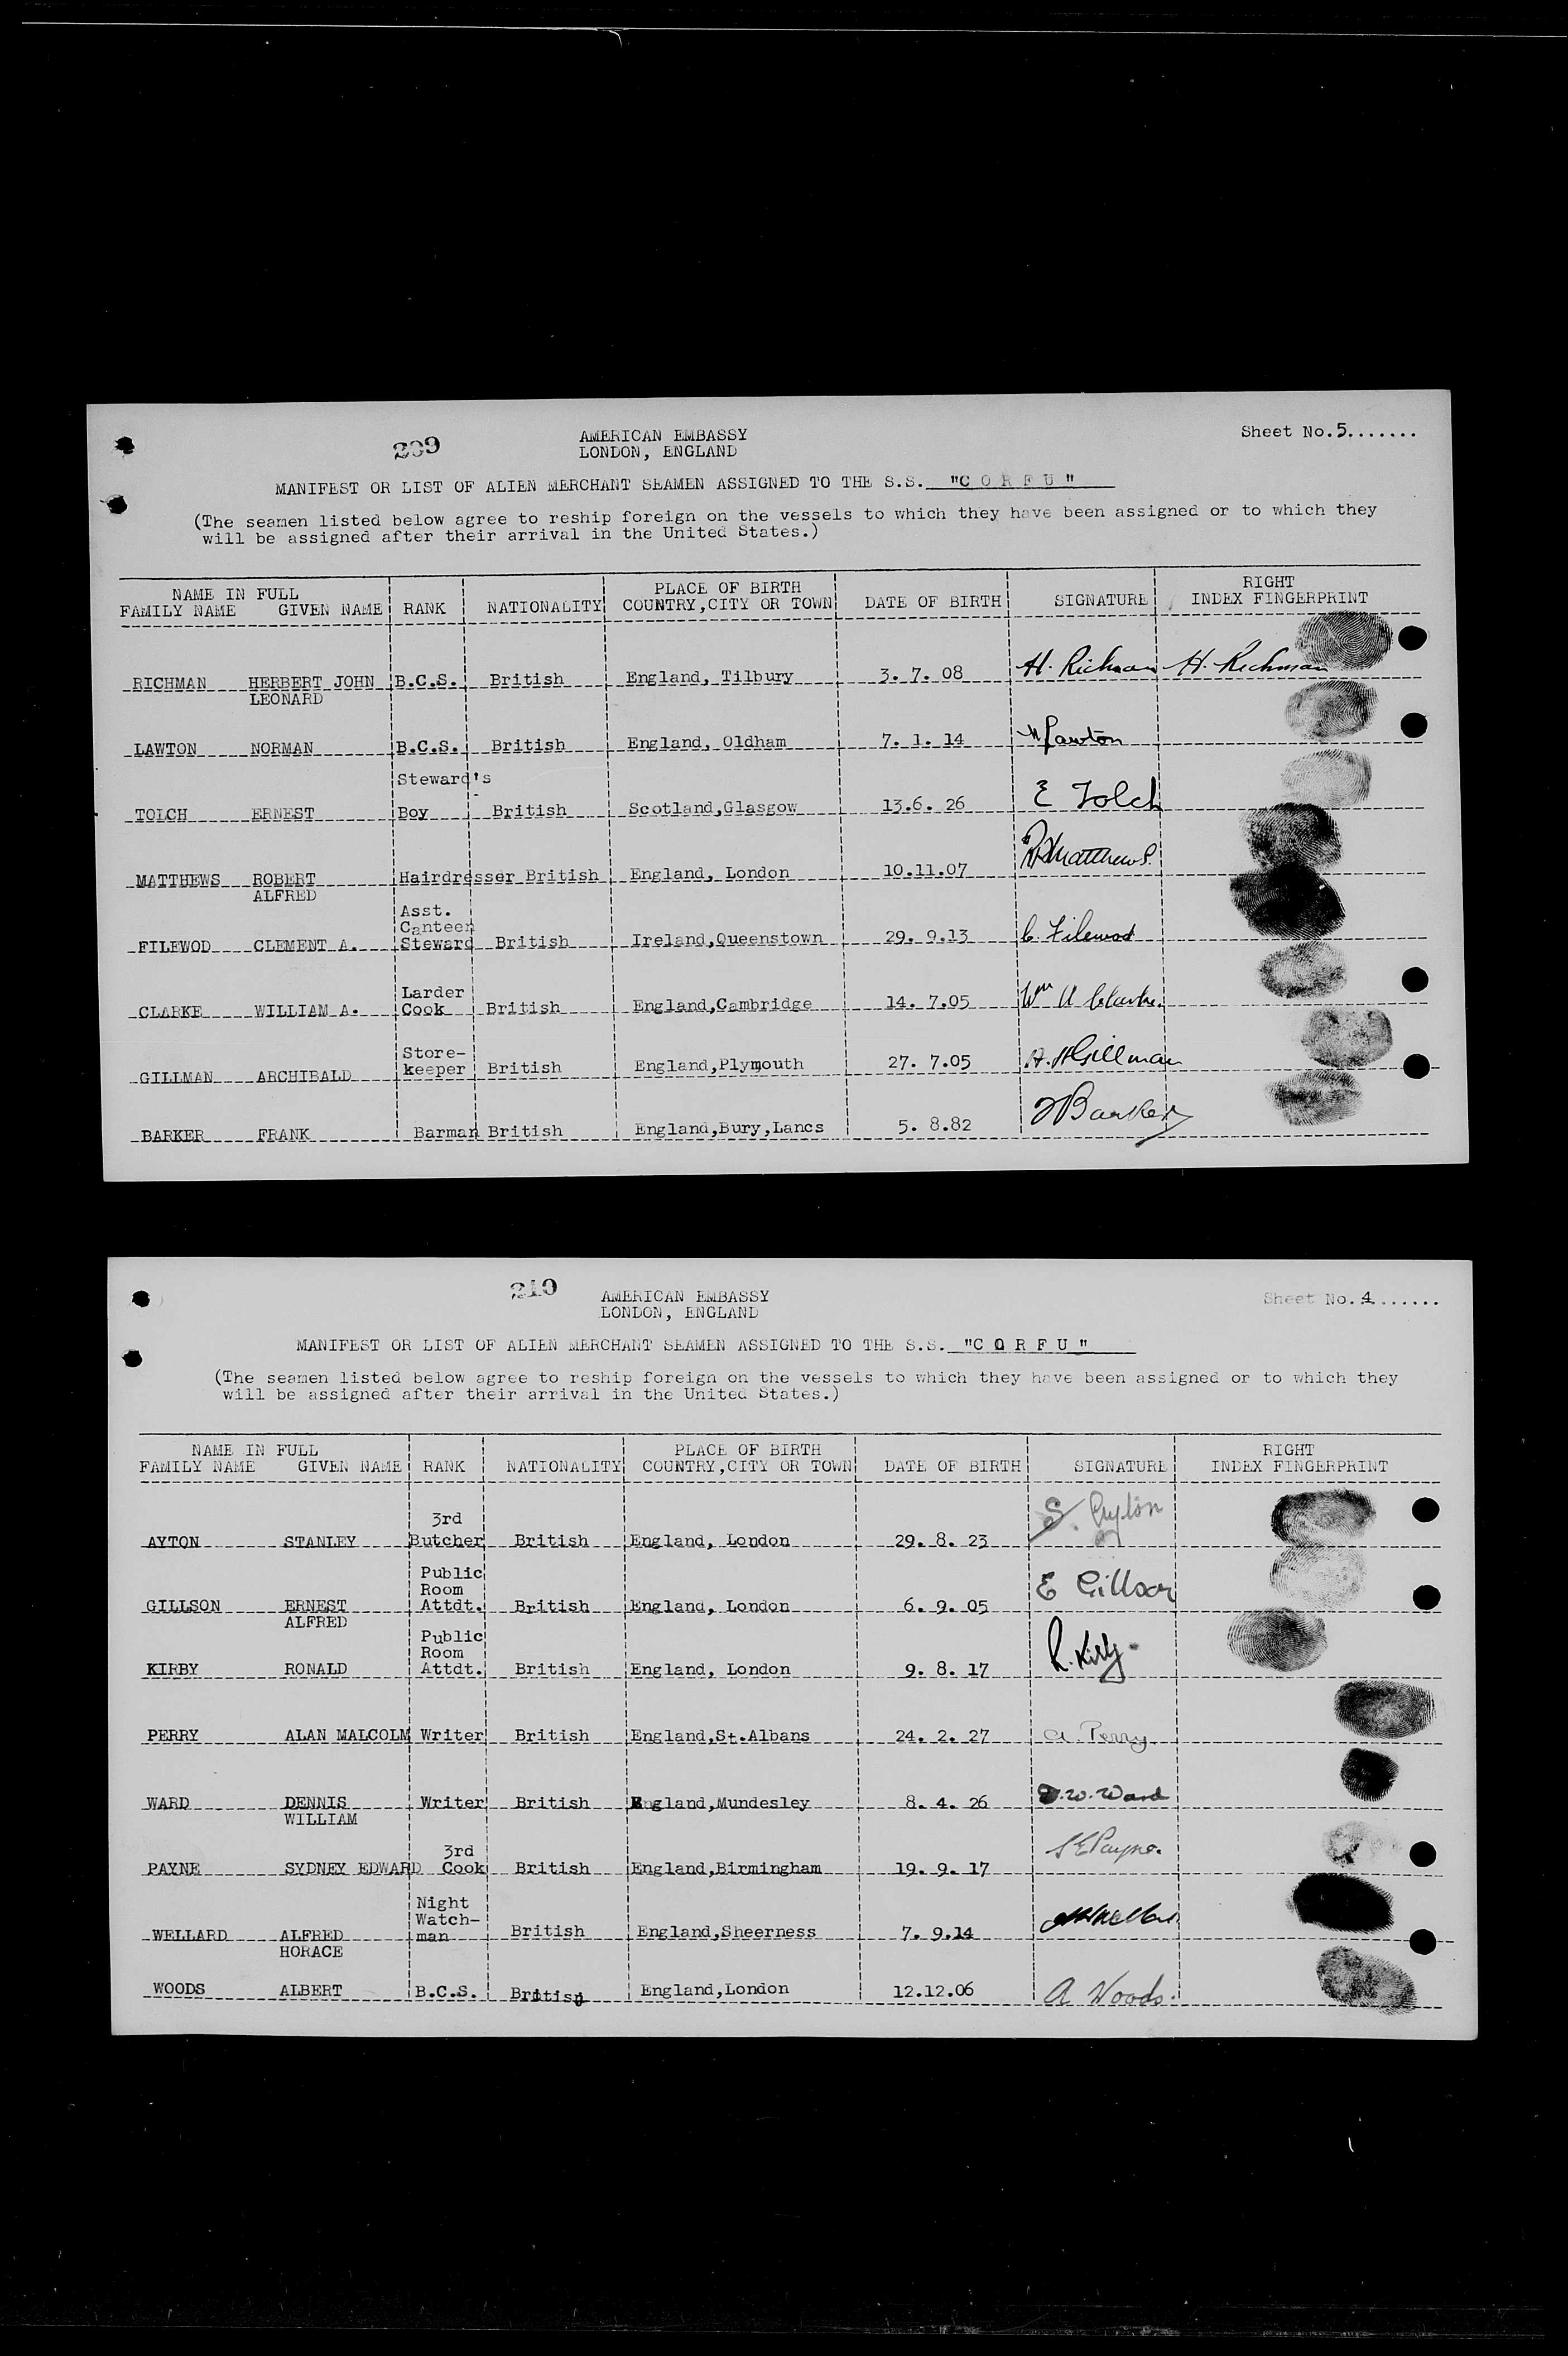 209
AMERICAN EMBASSY
LONDON, ENGLAND
Sheet No.5.......
MANIFEST OR LIST OF ALIEN MERCHANT SEAMEN ASSIGNED TO THE S.S. "C O R F U"
(The seamen listed below agree to reship foreign on the vessels to which they have been assigned or to which they
will be assigned after their arrival in the United States.)
NAME IN FULL PLACE OF BIRTH RIGHT
FAMILY NAME GIVEN NAME RANK NATIONALITY COUNTRY,CITY OR TOWN DATE OF BIRTH SIGNATURE INDEX FINGERPRINT
RICHMAN HERBERT JOHN B.C.S. British England, Tilbury 3. 7. 08 H. Richman H. Richman
LEONARD
LAWTON NORMAN B.C.S. British England, Oldham 7. 1. 14 N Lawton
Steward's
TOLCH ERNEST Boy British Scotland,Glasgow 13.6. 26 E Tolch
MATTHEWS ROBERT Hairdresser British England, London 10.11.07 R Matthews.
ALFRED
Asst.
Canteen
FILEWOD CLEMENT A. Steward British Ireland,Queenstown 29. 9.13 C. Filewod
Larder
CLARKE WILLIAM A. Cook British England,Cambridge 14. 7.05 Wm A Clarke.
Store-
GILLMAN ARCHIBALD keeper British England,Plymouth 27. 7.05 A. H Gillman
BARKER FRANK Barman British England,Bury,Lancs 5. 8.82 F Barker
210
AMERICAN EMBASSY
LONDON, ENGLAND
Sheet No. 4.......
MANIFEST OR LIST OF ALIEN MERCHANT SEAMEN ASSIGNED TO THE S.S. "C O R F U"
(The seamen listed below agree to reship foreign on the vessels to which they have been assigned or to which they
will be assigned after their arrival in the United States.)
NAME IN FULL PLACE OF BIRTH RIGHT
FAMILY NAME GIVEN NAME RANK NATIONALITY COUNTRY,CITY OR TOWN DATE OF BIRTH SIGNATURE INDEX FINGERPRINT
3rd
AYTON STANLEY Butcher British England, London 29. 8. 23 S. Ayton
Public
Room
GILLSON ERNEST Attdt. British England, London 6. 9. 05 E Gillson
ALFRED
Public
Room
KIRBY RONALD Attdt. British England, London 9. 8. 17 R. Kirby.
PERRY ALAN MALCOLM Writer British England,St.Albans 24. 2. 27 A. Perry
WARD DENNIS Writer British England,Mundesley 8. 4. 26 D. W. Ward
WILLIAM
3rd
PAYNE SYDNEY EDWARD Cook British England,Birmingham 19. 9. 17 S E Payne.
Night
Watch-
WELLARD ALFRED man British England,Sheerness 7. 9.14
HORACE
WOODS ALBERT B.C.S. British England,London 12.12.06 A Woods.